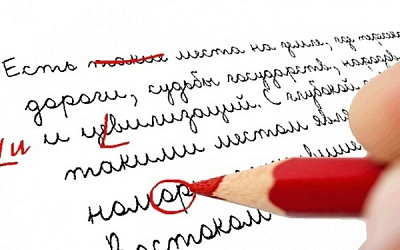 Есть такие места на земле, где
дороги, судьбы государств, народов
и цвилизаций. С глубокой
Ци
такими местом явля
номор выше
Востоком